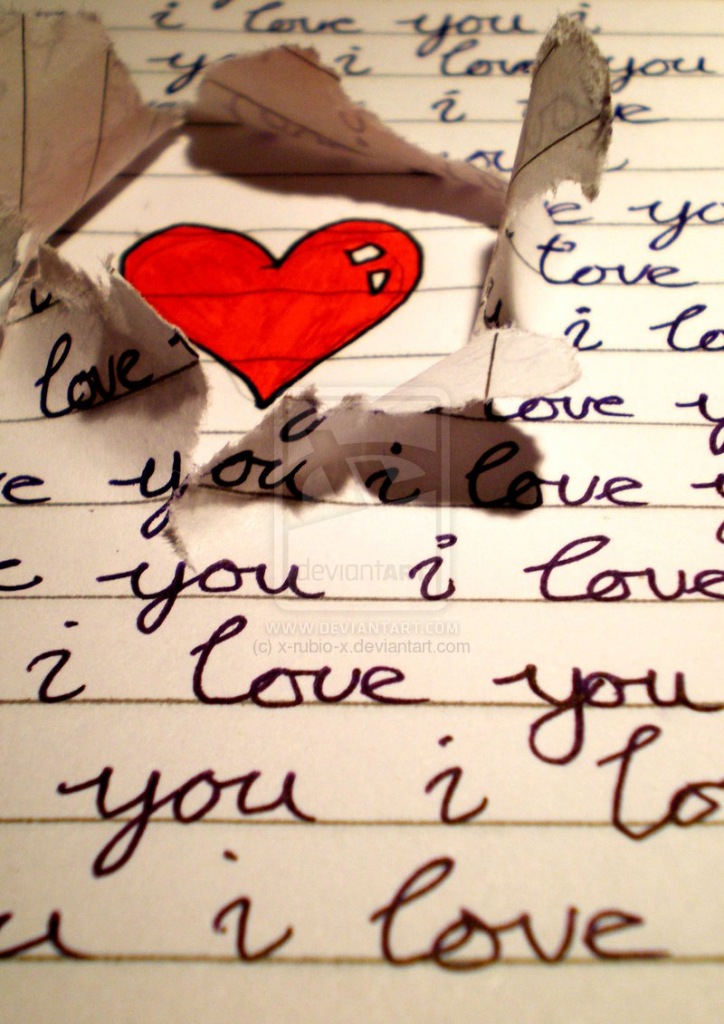 i love you i
you i love you
i love
you
you
love
i
love
love you
you i love
you i love
i love you
you i
i love
deviantART
WWW.DEVIANTART.COM
(c) x-rubio-x.deviantart.com